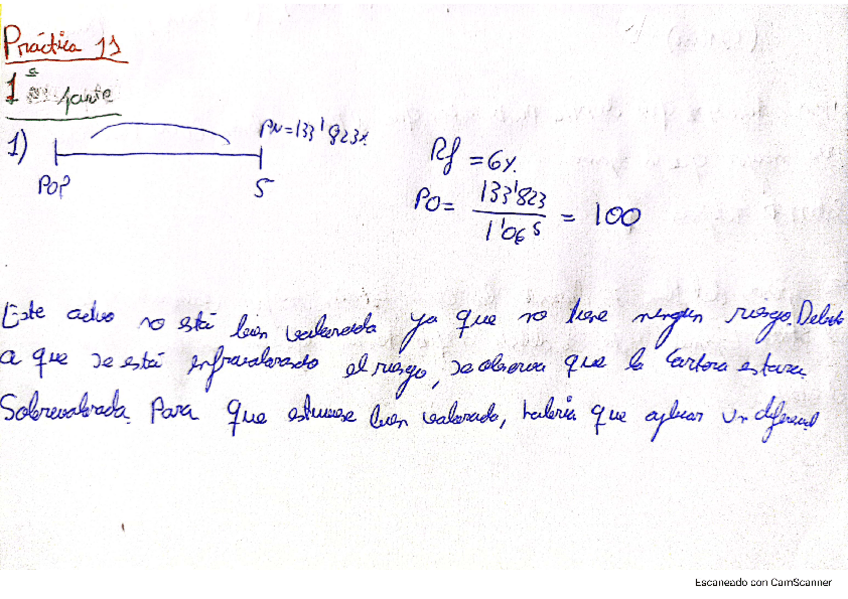 Práctica 11
1ª parte
1)
PN=133'823%
P0?
5
Rf = 6%
P0 = 133'823 / 1'06^5 = 100
Este activo no está bien valorada ya que no tiene ningún riesgo. Debido
a que se está infravalorando el riesgo, se observa que la cartera estara
Sobrevalorada. Para que estuviese bien valorado, habria que aplicar un diferencial
Escaneado con CamScanner